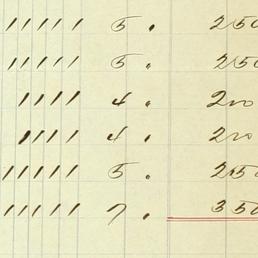 11111 5 . 250
11111 5 . 250
1111 4 . 200
1111 4 . 200
11111 5 . 250
11111 7 . 350